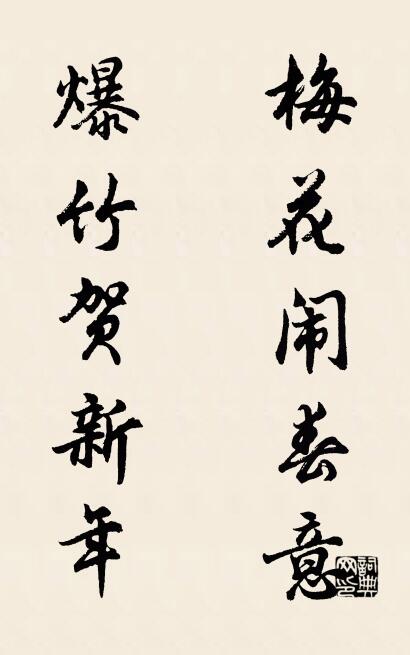 梅花闹春意
爆竹贺新年
词典网印